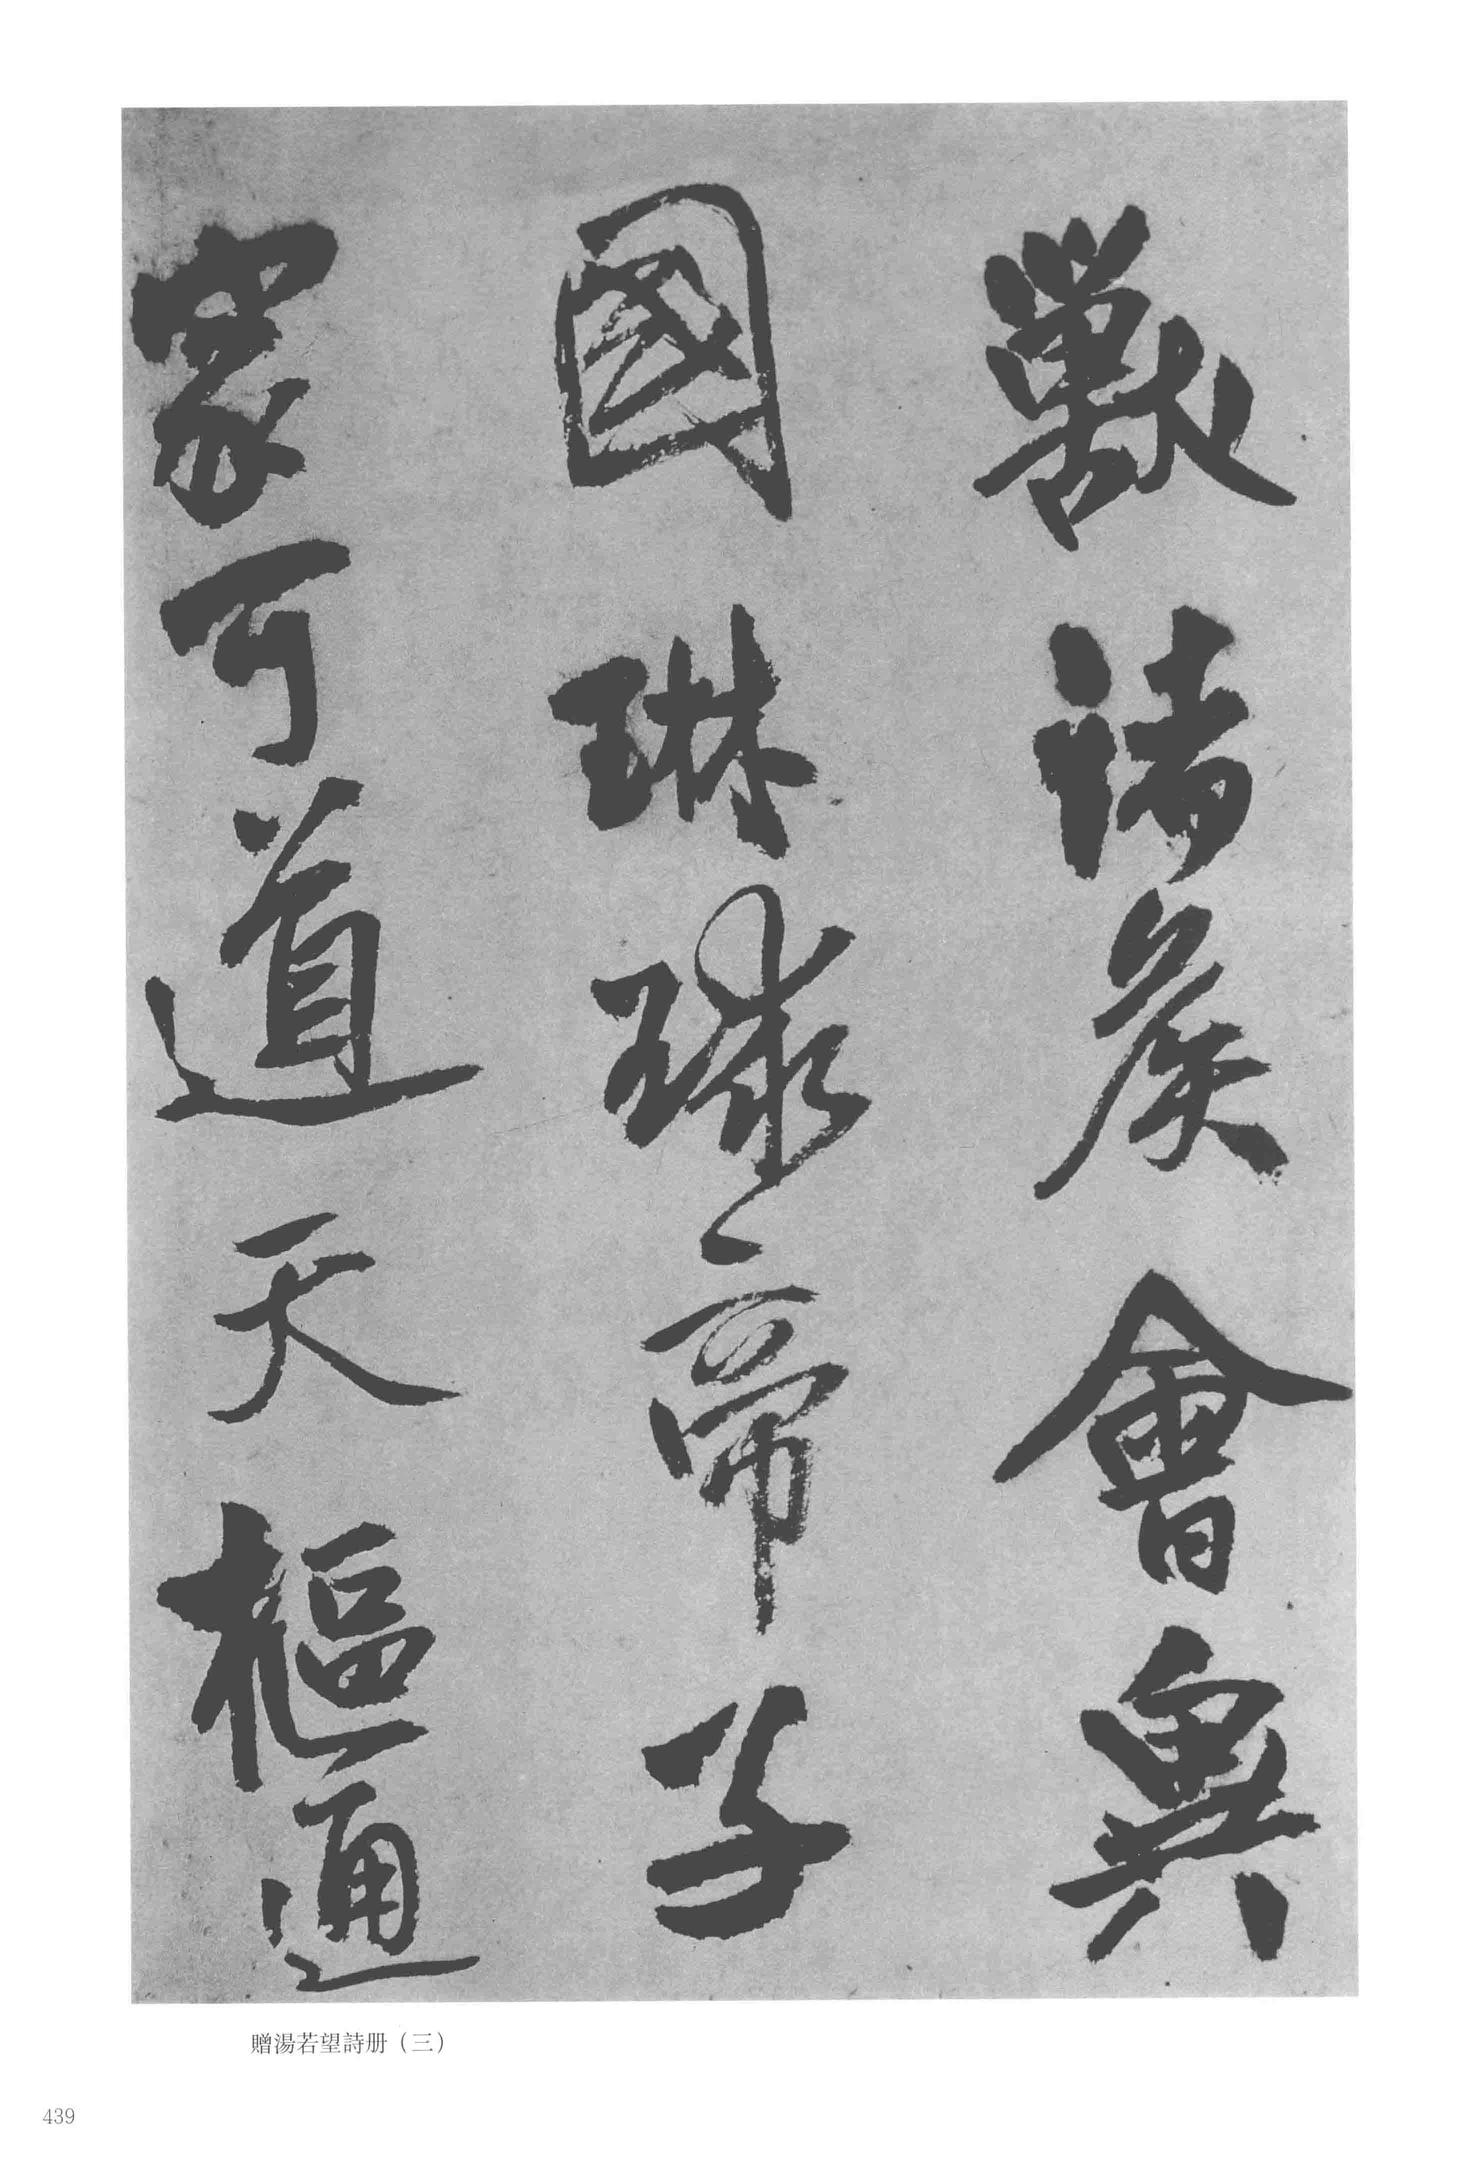 獸諸侯會與
國琳球帝子
家可道天樞通
贈湯若望詩册（三）
439